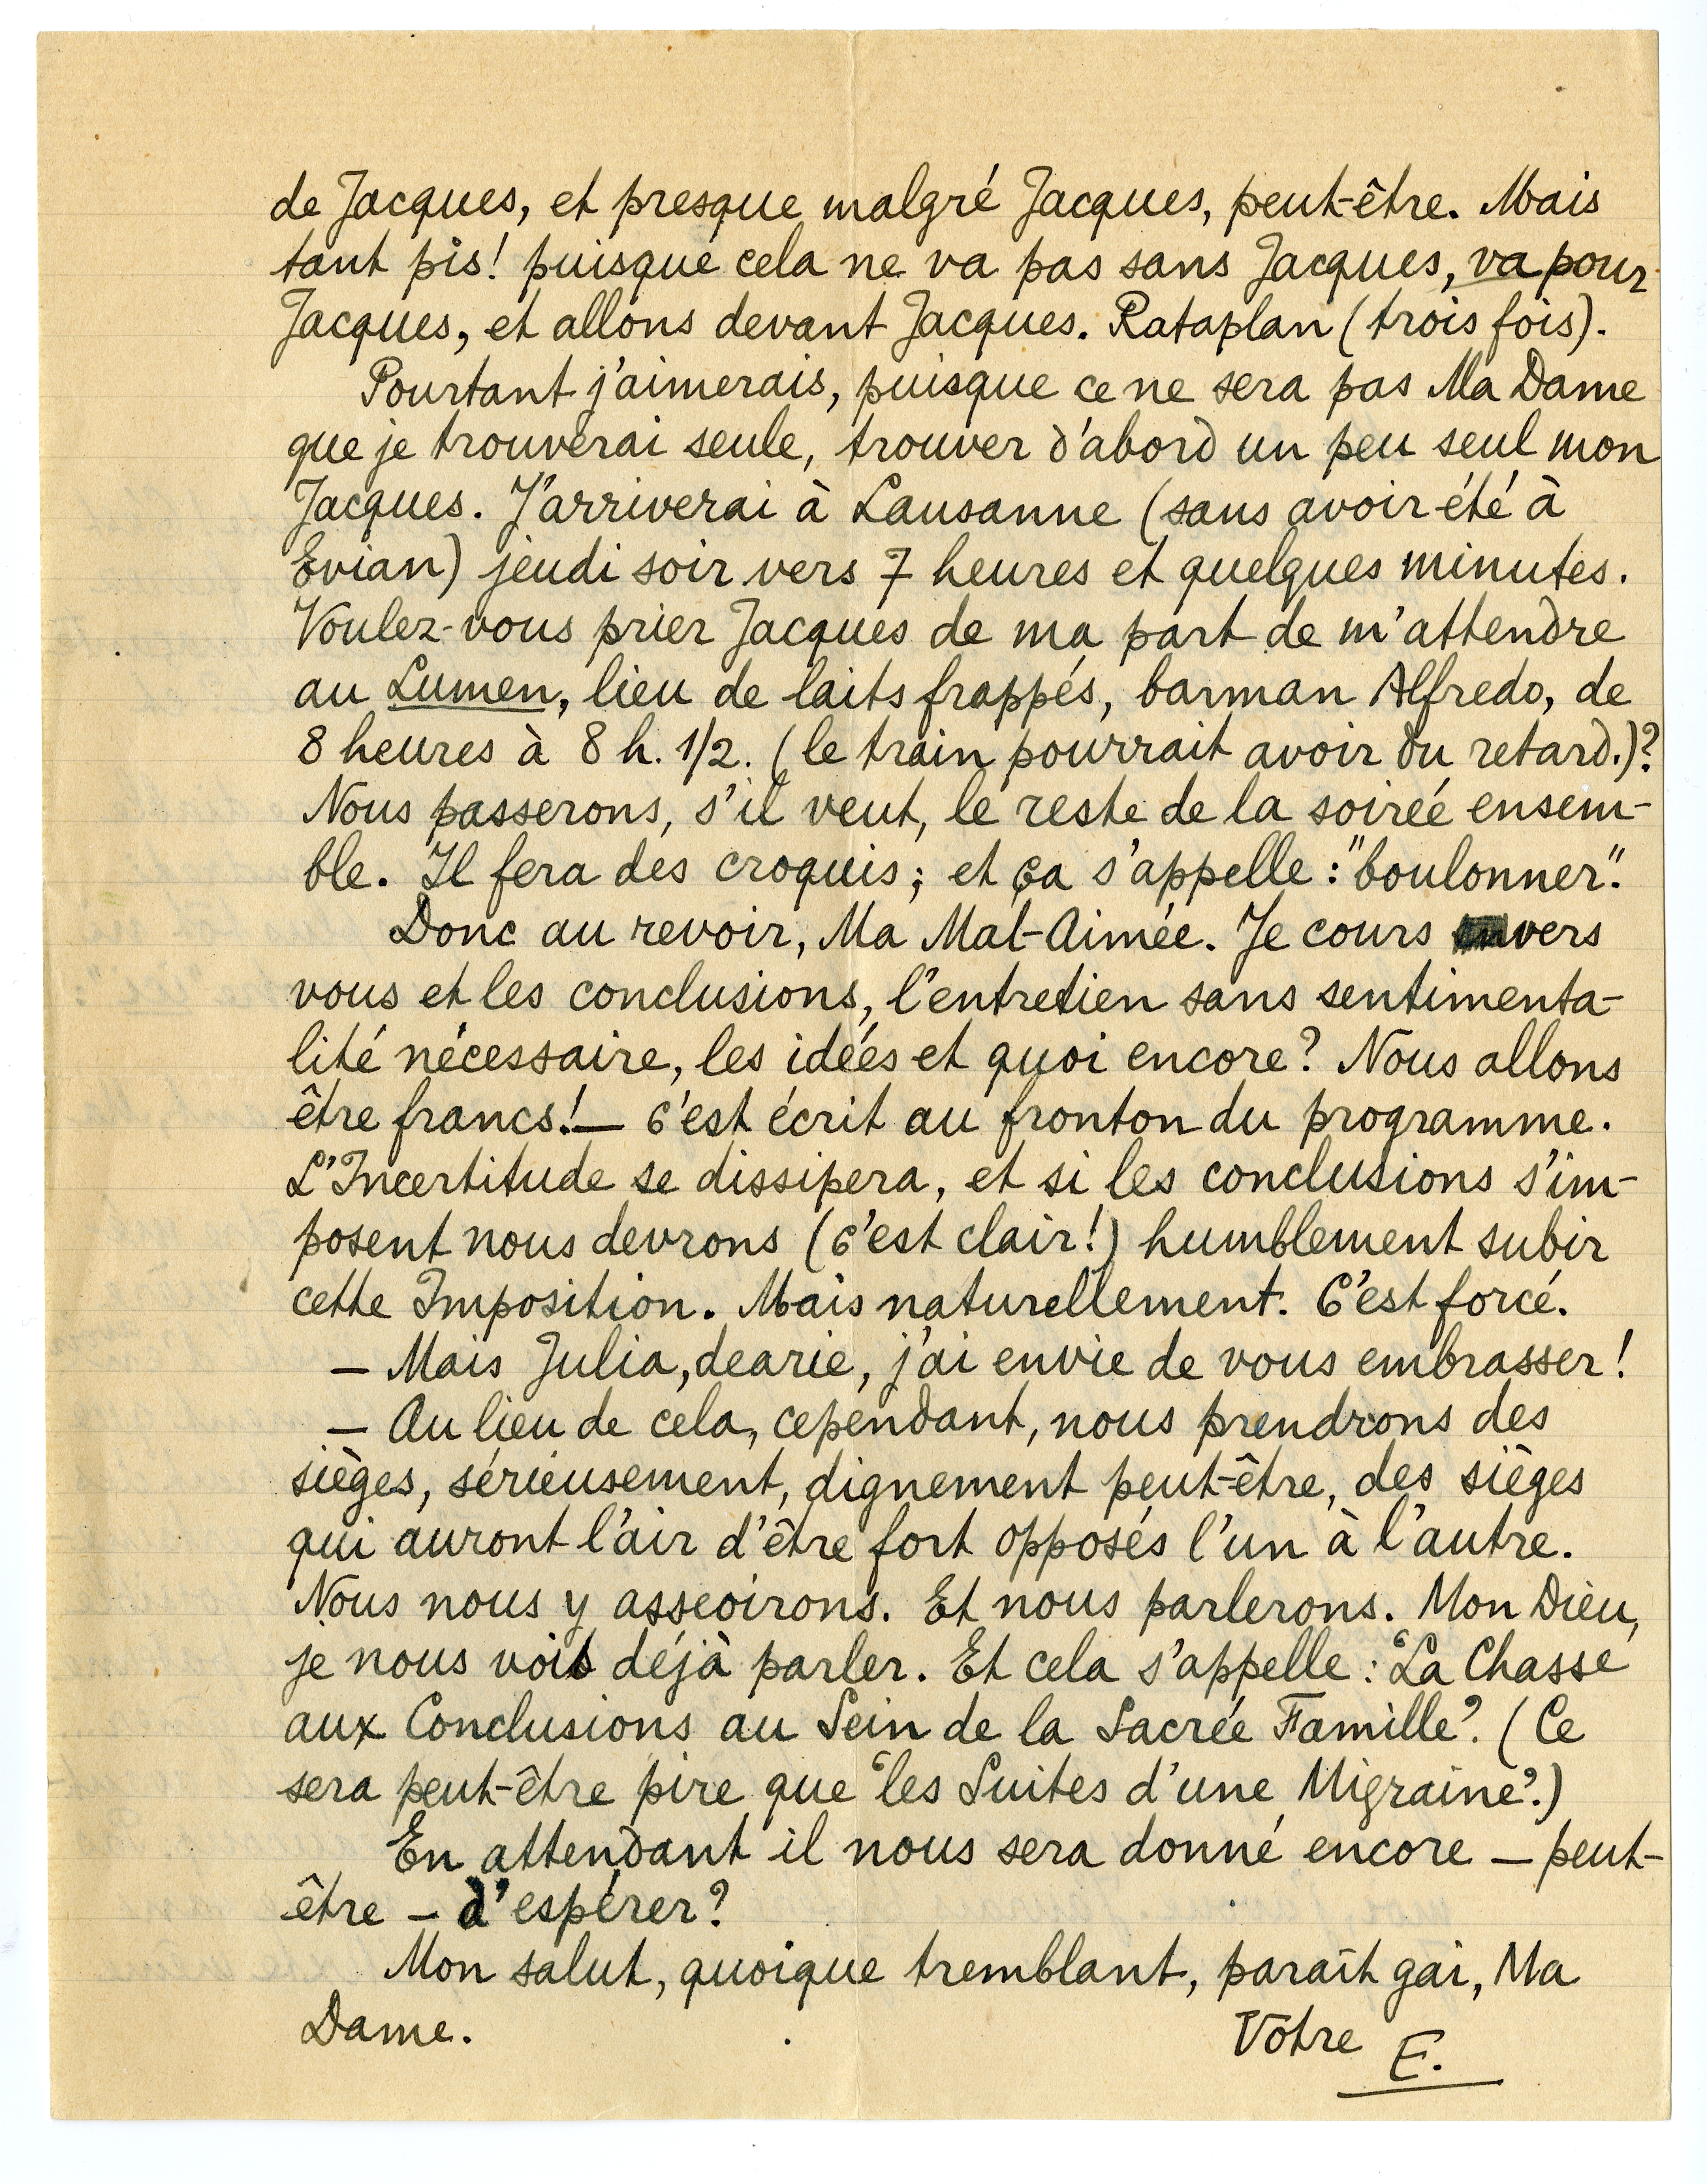 de Jacques, et presque malgré Jacques, peut-être. Mais
tant pis! puisque cela ne va pas sans Jacques, va pour
Jacques, et allons devant Jacques. Rataplan (trois fois).
Pourtant j'aimerais, puisque ce ne sera pas Ma Dame
que je trouverai seule, trouver d'abord un peu seul mon
Jacques. J'arriverai à Lausanne (sans avoir été à
Evian) jeudi soir vers 7 heures et quelques minutes.
Voulez-vous prier Jacques de ma part de m'attendre
au Lumen, lieu de laits frappés, barman Alfredo, de
8 heures à 8 h. 1/2. (le train pourrait avoir du retard.)?
Nous passerons, s'il veut, le reste de la soirée ensem-
ble. Il fera des croquis; et ça s'appelle: "boulonner".
Donc au revoir, Ma Mal-Aimée. Je cours vers
vous et les conclusions, l'entretien sans sentimenta-
lité nécessaire, les idées et quoi encore? Nous allons
être francs! — C'est écrit au fronton du programme.
L'Incertitude se dissipera, et si les conclusions s'im-
posent nous devrons (c'est clair!) humblement subir
cette Imposition. Mais naturellement. C'est forcé.
— Mais Julia, dearie, j'ai envie de vous embrasser!
— Au lieu de cela, cependant, nous prendrons des
sièges, sérieusement, dignement peut-être, des sièges
qui auront l'air d'être fort opposés l'un à l'autre.
Nous nous y asseoirons. Et nous parlerons. Mon Dieu,
je nous vois déjà parler. Et cela s'appelle: "La Chasse
aux Conclusions au Sein de la Sacrée Famille". (Ce
sera peut-être pire que "les Suites d'une Migraine".)
En attendant il nous sera donné encore — peut-
être — d'espérer?
Mon salut, quoique tremblant, paraît gai, Ma
Dame.
Vôtre E.